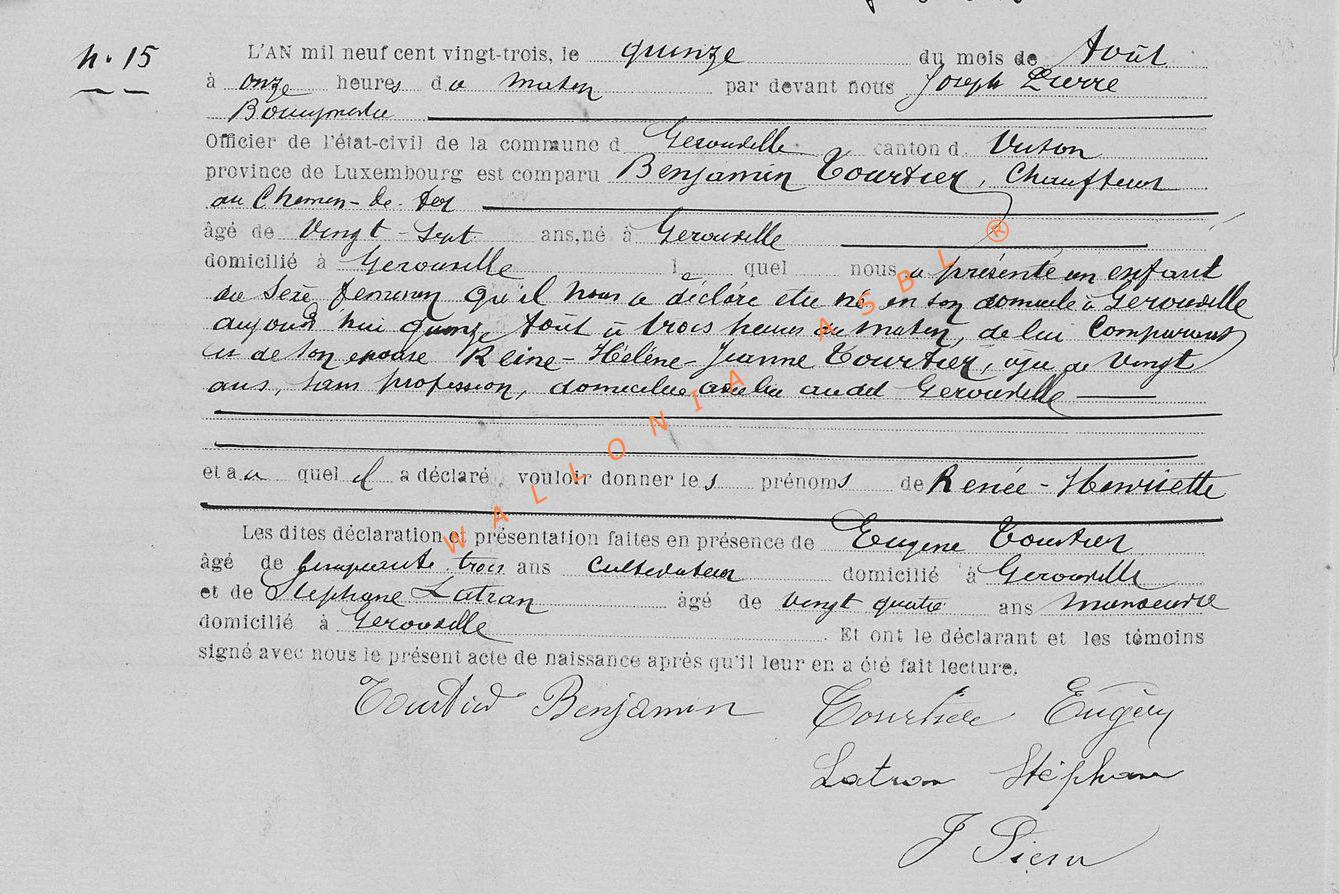 n. 15
L'AN mil neuf cent vingt-trois, le quinze du mois de Août
à onze heures du matin par devant nous Joseph Pierre
Bourgmestre
Officier de l'état-civil de la commune d Gerouville canton d Virton
province de Luxembourg est comparu Benjamin Tourtier, Chauffeur
au Chemin-de-fer
âgé de Vingt-Sept ans, né à Gerouville
domicilié à Gerouville le quel nous a présenté un enfant
du sexe féminin qu'il nous a déclaré être né en son domicile à Gerouville
aujourd'hui quinze Août à trois heures du matin, de lui Comparant
et de son épouse Reine-Hélène-Jeanne Tourtier, âgée de Vingt
ans, sans profession, domiciliée avec lui au dit Gerouville
et au quel il a déclaré vouloir donner les prénoms de Renée-Henriette
Les dites déclaration et présentation faites en présence de Eugène Tourtier
âgé de Cinquante trois ans Cultivateur domicilié à Gerouville
et de Stéphane Latran âgé de Vingt quatre ans manoeuvre
domicilié à Gerouville Et ont le déclarant et les témoins
signé avec nous le présent acte de naissance après qu'il leur en a été fait lecture.
Tourtier Benjamin Tourtier Eugène
Latran Stéphane
J Pierre
WALLONIA ASBL ®